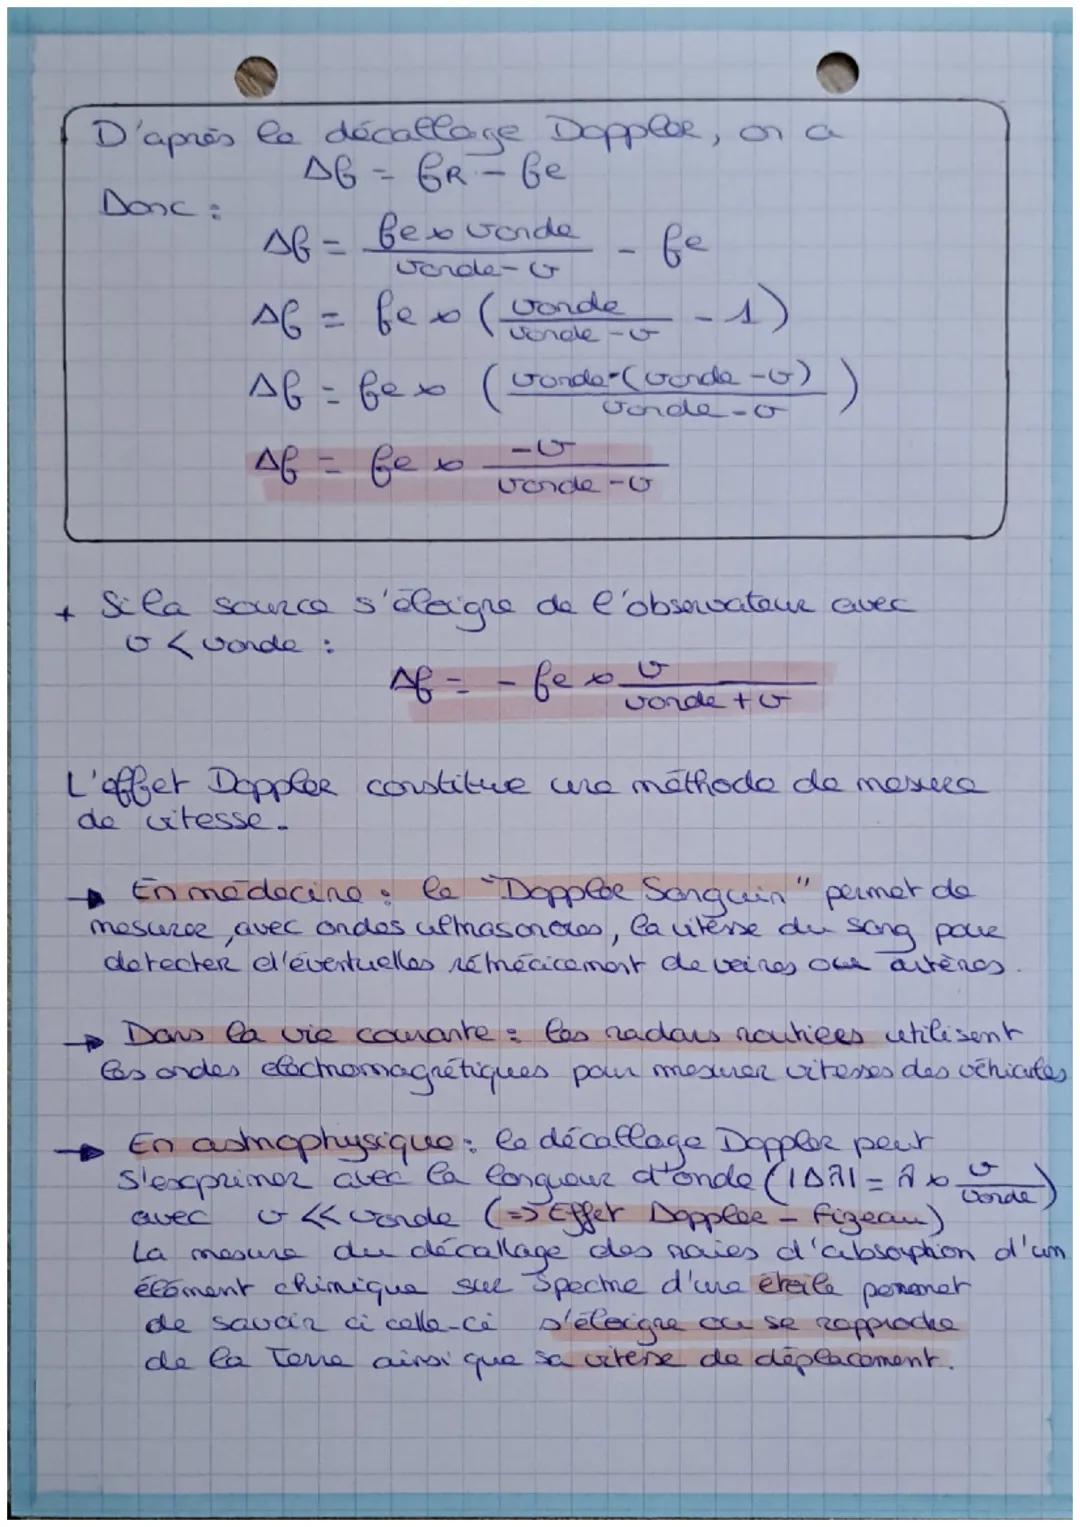 D'après le décallage Doppler, on a
Δf = fR - fe
Donc :
Δf = (fe × vonde)/(vonde - v) - fe
Δf = fe × (vonde/(vonde - v) - 1)
Δf = fe × ((vonde - (vonde - v))/(vonde - v))
Δf = fe × -v/(vonde - v)
+ Si la source s'éloigne de l'observateur avec
v < vonde :
Δf = - fe × v/(vonde + v)
L'effet Doppler constitue une méthode de mesure
de vitesse.
→ En médecine : le "Doppler Sanguin" permet de
mesurer, avec ondes ultrasonores, la vitesse du sang pour
detecter d'éventuelles rétrécicement de veines ou artères.
→ Dans la vie courante : les radars routiers utilisent
les ondes électromagnétiques pour mesurer vitesses des véhicules
→ En astrophysique : le décallage Doppler peut
s'exprimer avec la longueur d'onde (|Δλ| = λ × v/vonde)
avec v << vonde (=> Effet Doppler - Fizeau)
La mesure du décallage des raies d'absorption d'un
élément chimique sur spectre d'une étoile permet
de savoir ci celle-ci s'éloigne ou se rapproche
de la Terre ainsi que sa vitesse de déplacement.